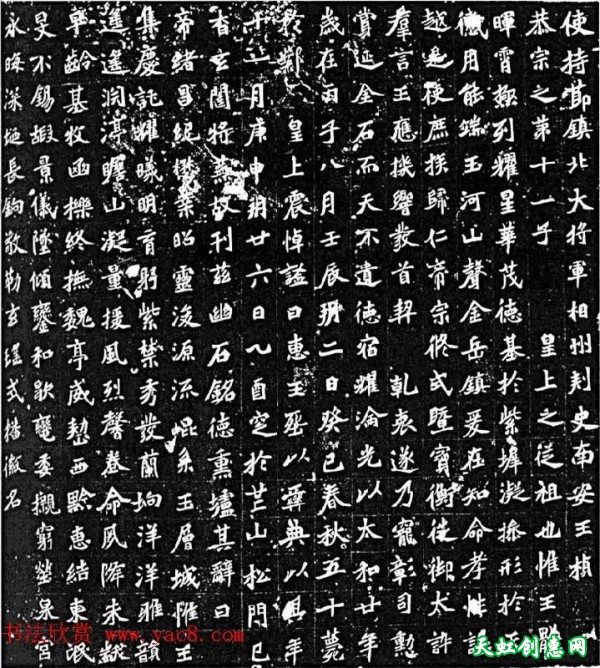 使持節鎮北大將軍相州刺史南安王楨
恭宗之第十一子 皇上之從祖也惟王體
暉霄極列耀星華茂德基於紫墀凝操形於天
儀用能端玉河山聲金岳鎮爰在知命孝性諶
越是使庶族歸仁帝宗攸式暨寶衡徙御太訊
羣言王應機響發首契 乾衷遂乃寵彰司勳
賞延金石而天不遺德宿耀淪光以太和廿年
歲在丙子八月壬辰朔二日癸巳春秋五十薨
於鄴 皇上震悼謚曰惠王葬以彝典以其年
十一月庚申朔廿六日乙酉窆於芒山松門已
杳玄闥將蕪故刊茲幽石銘德熏壚其辭曰
帝緒昌紀懋業昭靈浚源流崐系玉層城惟王
集慶託耀曦明育躬紫禁秀發蘭坰洋洋雅韻
遙遙淵渟瞻山凝量援風烈馨卷命夙降未黻
守齡基牧函櫟終撫魏亭威整西黔惠結東氓
旻不錫嘏景儀墜傾鑾和歇轡委櫬窮塋泉宮
永晦深埏長鋦敬勒玄瑤式播徽名
书法欣赏 www.yac8.com
天虹创意网